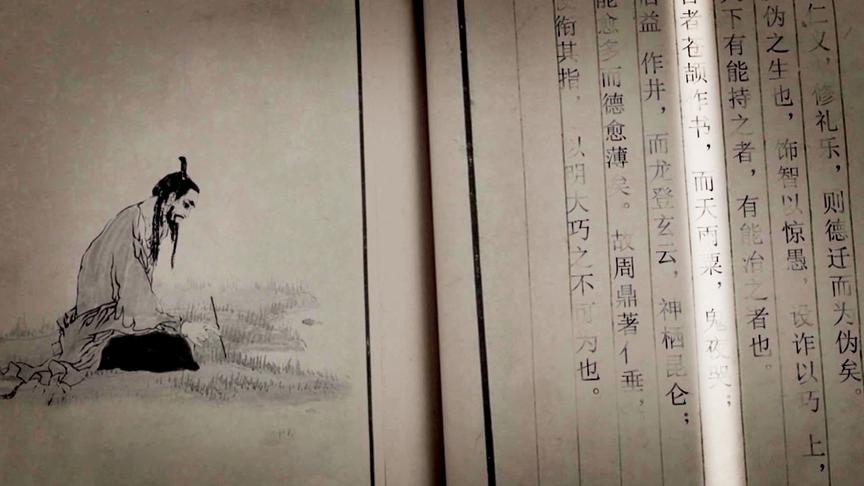 仁义，修礼乐，则德迁而为伪矣。
伪之生也，饰智以惊愚，设诈以巧上，
天下有能持之者，有能治之者也。
者苍颉作书，而天雨粟，鬼夜哭；
益作井，而龙登玄云，神栖昆仑；
能愈多而德愈薄矣。故周鼎著亻垂，
衔其指，以明大巧之不可为也。